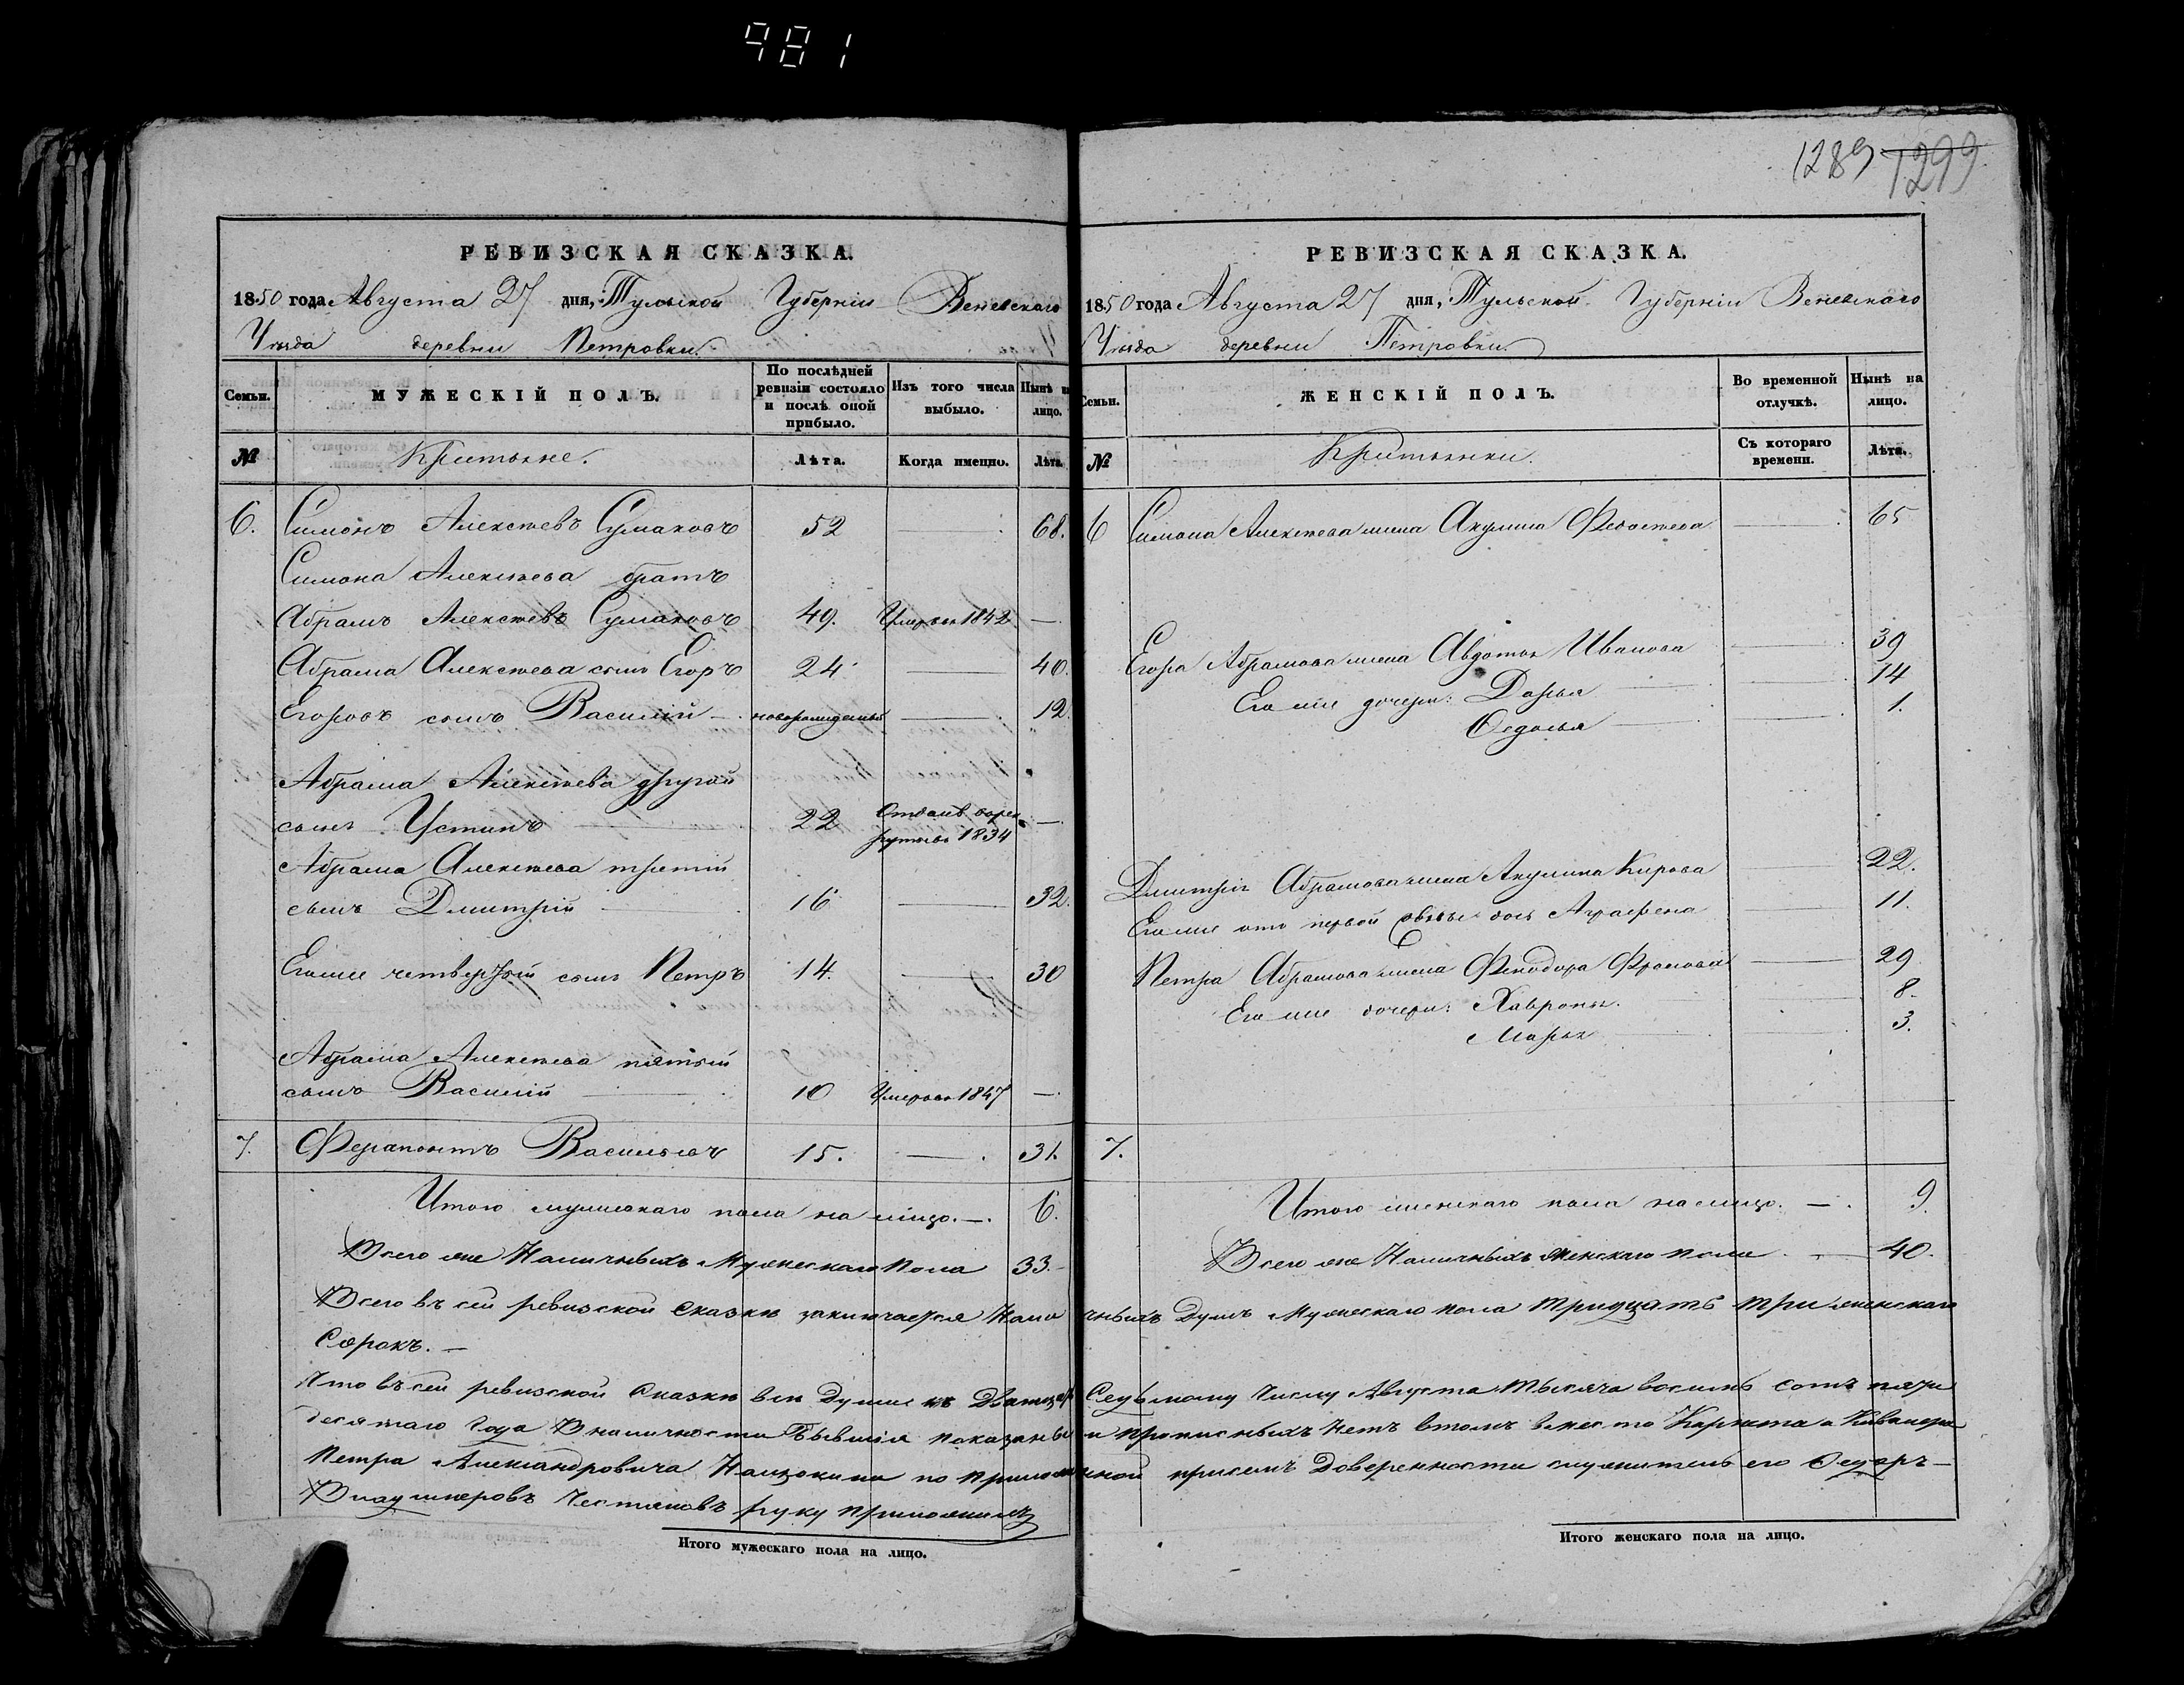 981
1289 1299
РЕВИЗСКАЯ СКАЗКА.
1850 года Августа 27 дня, Тульской Губерніи Веневскаго
Уѣзда деревни Петровки.
Семьи.
МУЖЕСКІЙ ПОЛЪ.
По послѣдней ревизіи состояло и послѣ оной прибыло.
Изъ того числа выбыло.
Нынѣ на лицо.
№
Кристьяне.
Лѣта.
Когда именно.
Лѣта.
6. Симонъ Алексѣевъ Сумаковъ 52 — 68.
Симона Алексѣева братъ
Абрамъ Алексѣевъ Сумаковъ 49. Умеръ въ 1842 —
Абрама Алексѣева сынъ Егоръ 24 — 40.
Егоровъ сынъ Василій — новорожденный — 12.
Абрама Алексѣева другой
сынъ Устинъ 22 Отданъ въ рек
рутывъ 1834 —
Абрама Алексѣева третій
сынъ Дмитрій 16 — 32.
Егоже четвертый сынъ Петръ 14. — 30
Абрама Алексѣева пятый
сынъ Василій 10 Умеръ въ 1847 —
7. Ферапонтъ Васильевъ 15. — 31.
Итого мужескаго пола на лицо. — 6.
Всего же Наличныхъ Мужескаго Пола 33.
РЕВИЗСКАЯ СКАЗКА.
1850 года Августа 27 дня, Тульской Губерніи Веневскаго
Уѣзда деревни Петровки.
Семьи.
ЖЕНСКІЙ ПОЛЪ.
Во временной отлучкѣ.
Нынѣ на лицо.
№
Кристьянки.
Съ котораго времени.
Лѣта.
6 Симона Алексѣева жена Акулина Федосѣева — 65
Егора Абрамова жена Авдотья Иванова — 39
Его же дочери: Дарья — 14
Федосья — 1.
Дмитрія Абрамова жена Акулина Кирова — 22.
Его же отъ первой дочь Аграфена — 11.
Петра Абрамова жена Фенодора Фролова — 29
Его же дочери: Хавронья. 8.
Марья — 3.
7.
Итого женскаго пола на лицо. — 9.
Всего же Наличныхъ Женскаго пола — 40.
Всего въ сей ревизской Сказкѣ заключается Наличныхъ Душъ Мужескаго пола тридцать три женскаго
Сорокъ. —
Что въ сей ревизской Сказкѣ всѣ Души къ Двацать Седьмому Числу Августа Тысяча восемь сотъ пяти
десятаго Года Вналичности Бывшія показаны и прописныхъ Нетъ втомъ вместо Корнета и Кавалера
Петра Александровича Нащокина по приложенной присемъ Доверенности служитель его Федоръ —
Владимеровъ руку приложилъ
Итого мужескаго пола на лицо.
Итого женскаго пола на лицо.